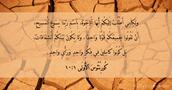 وَلكِنَّنِي أَطْلُبُ إِلَيْكُمْ أَيُّهَا الإِخْوَةُ، بِاسْمِ رَبِّنَا يَسُوعَ الْمَسِيحِ،
أَنْ تَقُولُوا جَمِيعُكُمْ قَوْلًا وَاحِدًا، وَلاَ يَكُونَ بَيْنَكُمُ انْشِقَاقَاتٌ،
بَلْ كُونُوا كَامِلِينَ فِي فِكْرٍ وَاحِدٍ وَرَأْيٍ وَاحِدٍ،
كُورِنْثُوسَ الأُولَى ١٠:١